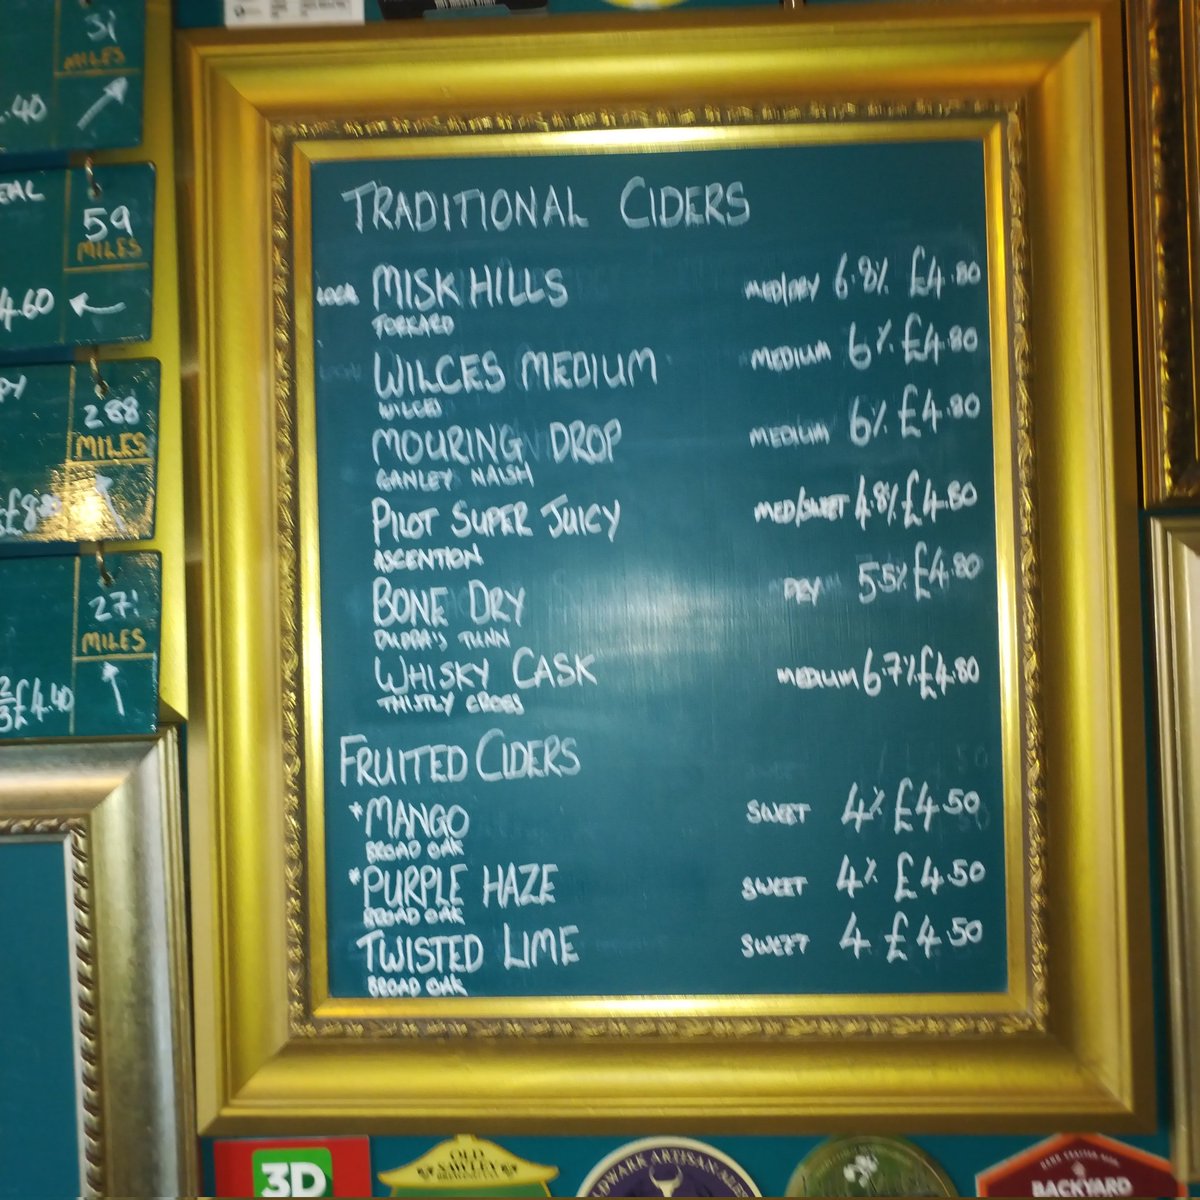 31
MILES
.40
EAL
59
MILES
4.60
PY
288
MILES
£8
27
MILES
2/3 £4.40
TRADITIONAL CIDERS
LOCAL MISK HILLS MED/DRY 6.8% £4.80
TORKARD
WILCES MEDIUM MEDIUM 6% £4.80
WILCES
MOURING DROP MEDIUM 6% £4.80
GANLEY NAISH
PILOT SUPER JUICY MED/SWEET 4.8% £4.80
ASCENTION
BONE DRY DRY 5.5% £4.80
DUDDA'S TUNN
WHISKY CASK MEDIUM 6.7% £4.80
THISTLY CROSS
FRUITED CIDERS
*MANGO SWEET 4% £4.50
BROAD OAK
*PURPLE HAZE SWEET 4% £4.50
BROAD OAK
TWISTED LIME SWEET 4 £4.50
BROAD OAK
3D
OLD
SAWLEY
DWARK ARTISAN ALES
BACKYARD